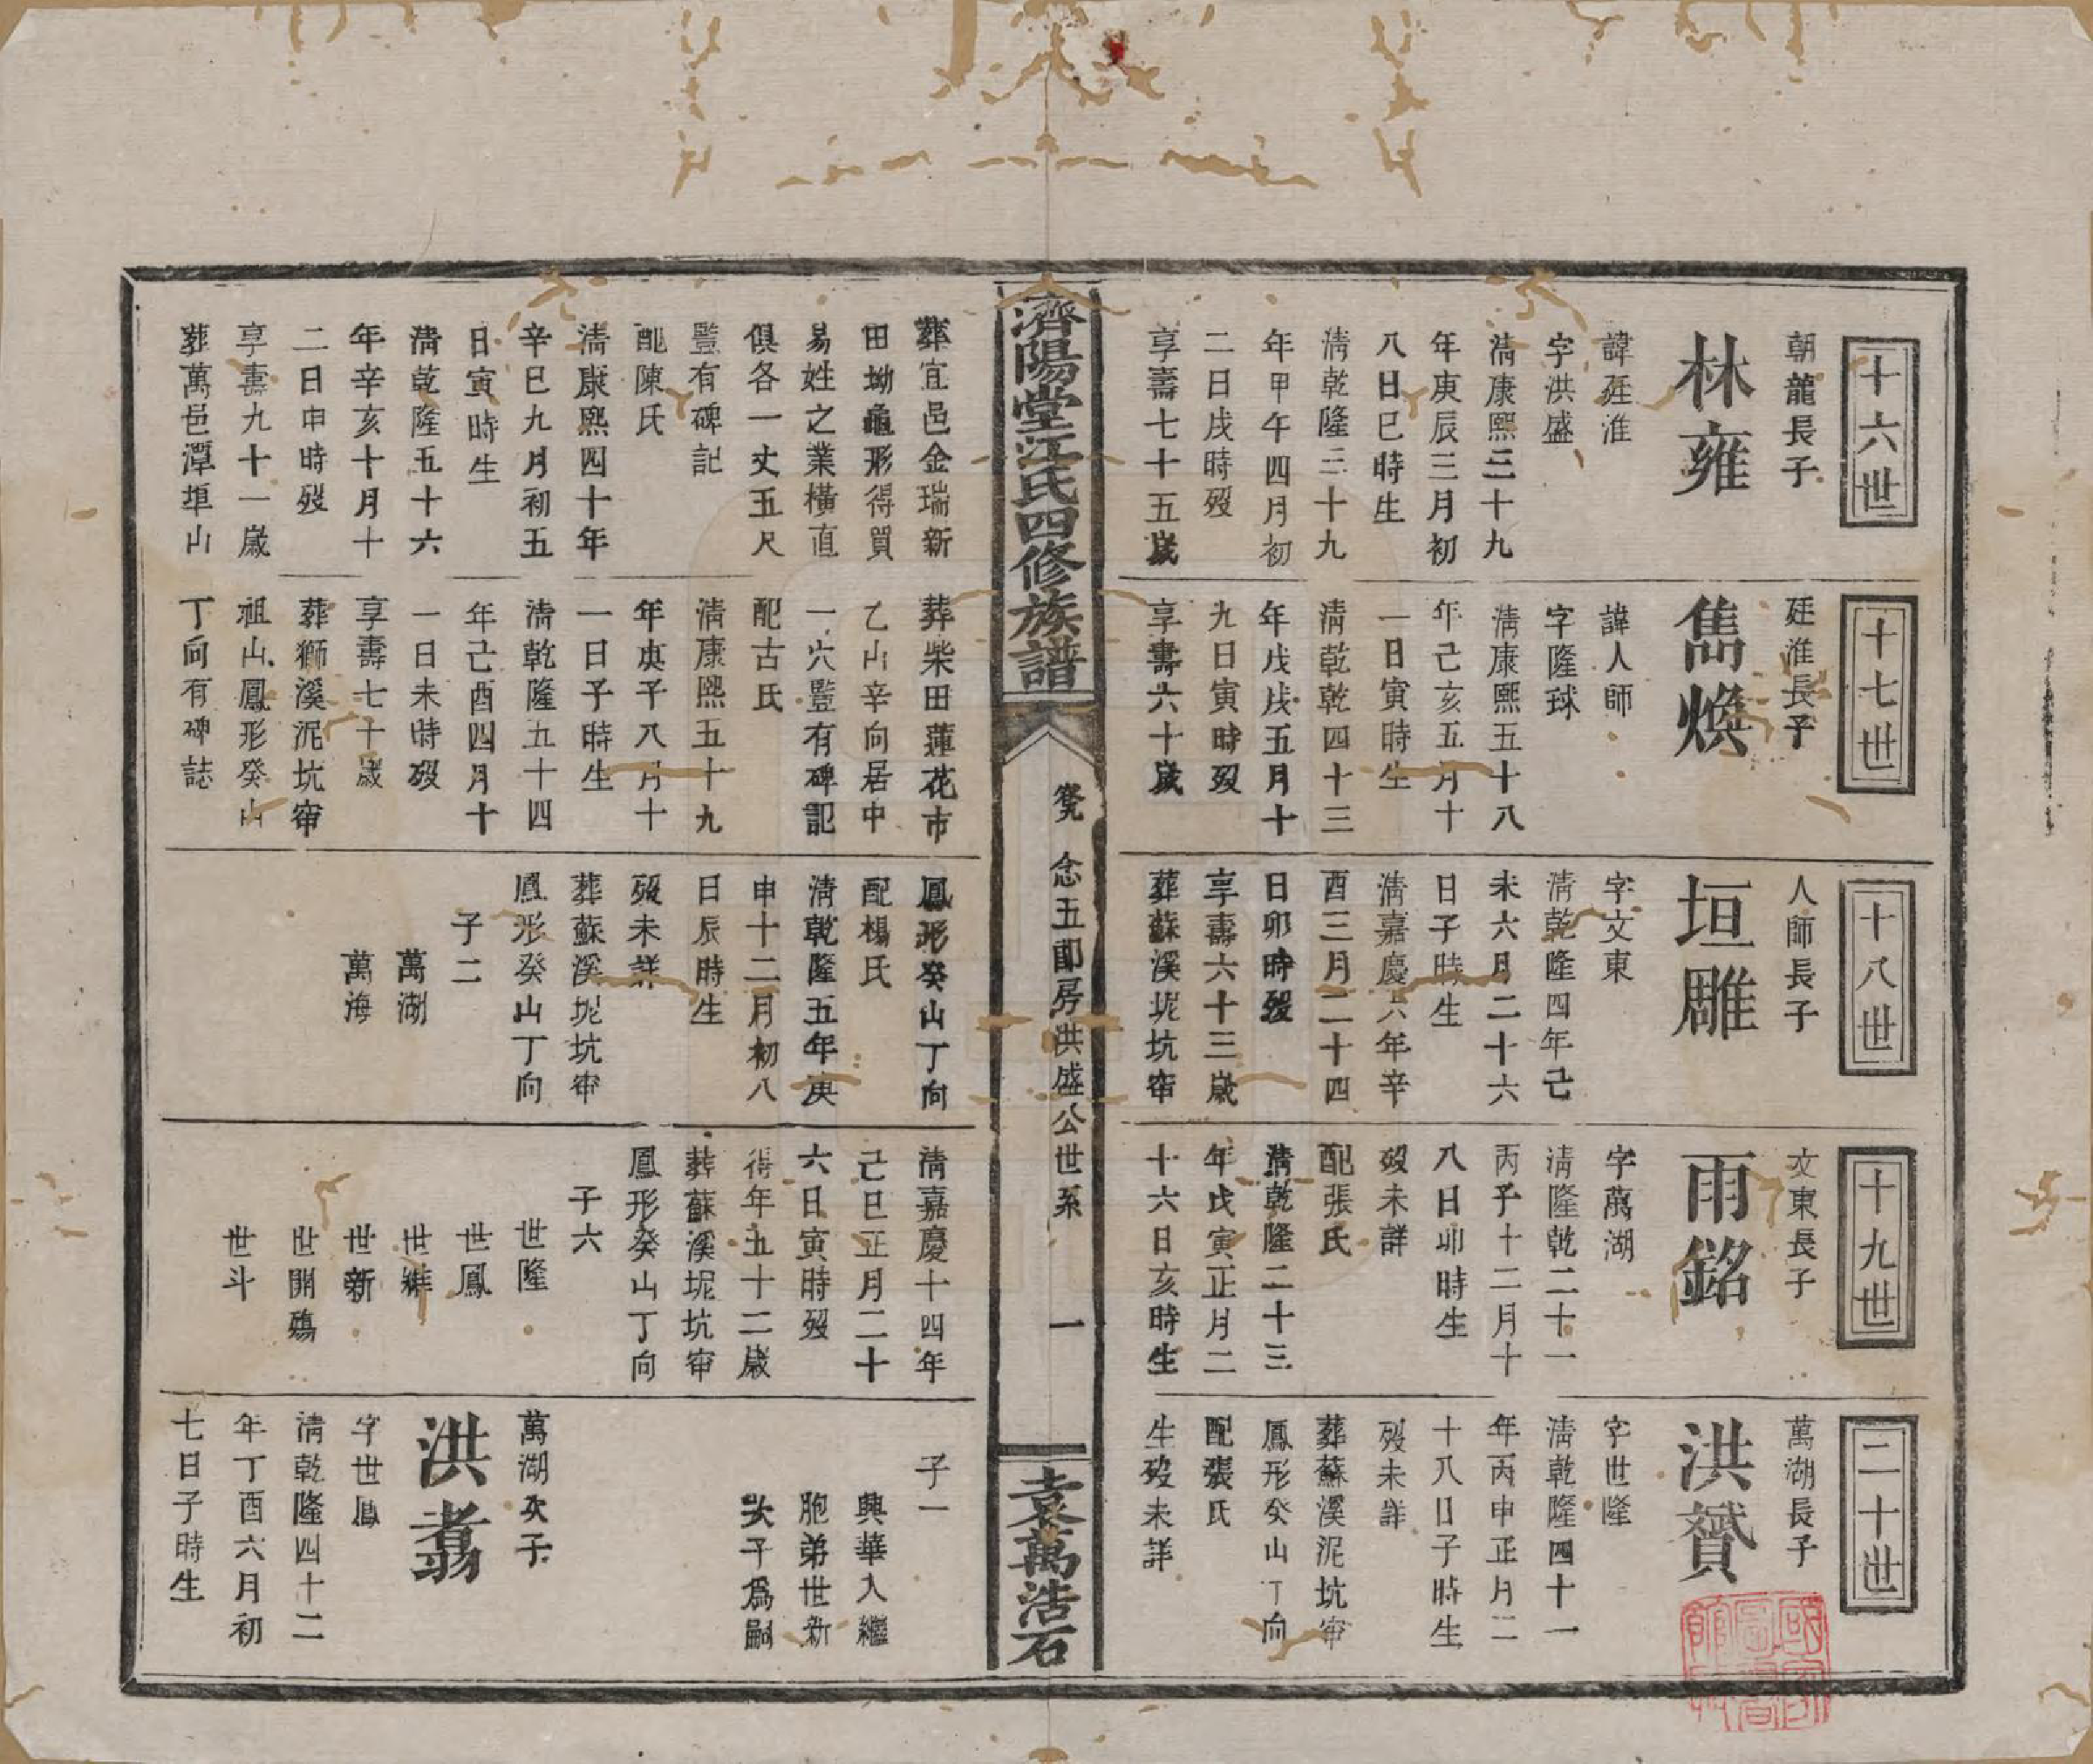 十六世
朝龍長子
林雍
諱廷淮
字洪盛
清康熙三十九
年庚辰三月初
八日巳時生
清乾隆三十九
年甲午四月初
二日戌時歿
享壽七十五歲
十七世
廷淮長子
雋煥
諱人師
字隆球
清康熙五十八
年己亥五月十
一日寅時生
清乾乾四十三
年戊戌五月十
九日寅時歿
享壽六十歲
十八世
人師長子
垣雕
字文東
清乾隆四年己
未六月二十六
日子時生
清嘉慶六年辛
酉三月二十四
日卯時歿
享壽六十三歲
葬蘇溪坭坑窜
十九世
文東長子
雨銘
字萬湖
清隆乾二十一
丙子十二月十
八日卯時生
歿未詳
配張氏
清乾隆二十三
年戊寅正月二
十六日亥時生
二十世
萬湖長子
洪贇
字世隆
清乾隆四十一
年丙申正月二
十八日子時生
歿未詳
葬蘇溪泥坑窜
鳳形癸山丁向
配張氏
生歿未詳
濟陽堂江氏四修族譜
念五郎房洪盛公世系
一
袁萬浩石
葬宜邑金瑞新
田坳龜形得買
易姓之業橫直
俱各一丈五尺
豎有碑記
配陳氏
清康熙四十年
辛巳九月初五
日寅時生
清乾隆五十六
年辛亥十月十
二日申時歿
享壽九十一歲
葬萬邑潭埠山
葬柴田蓮花市
乙山辛向居中
一穴豎有碑記
配古氏
清康熙五十九
年庚子八月十
一日子時生
清乾隆五十四
年己酉四月十
一日未時歿
享壽七十歲
葬獅溪泥坑窜
祖山鳳形癸山
丁向有碑誌
鳳形癸山丁向
配楊氏
清乾隆五年庚
申十二月初八
日辰時生
歿未詳
葬蘇溪坭坑窜
鳳形癸山丁向
子二
萬湖
萬海
清嘉慶十四年
己巳正月二十
六日寅時歿
得年五十二歲
葬蘇溪坭坑窜
鳳形癸山丁向
子六
世隆
世鳳
世維
世新
世開殤
世斗
子一
興華入繼
胞弟世新
次子爲嗣
萬湖次子
洪翥
字世鳳
清乾隆四十二
年丁酉六月初
七日子時生